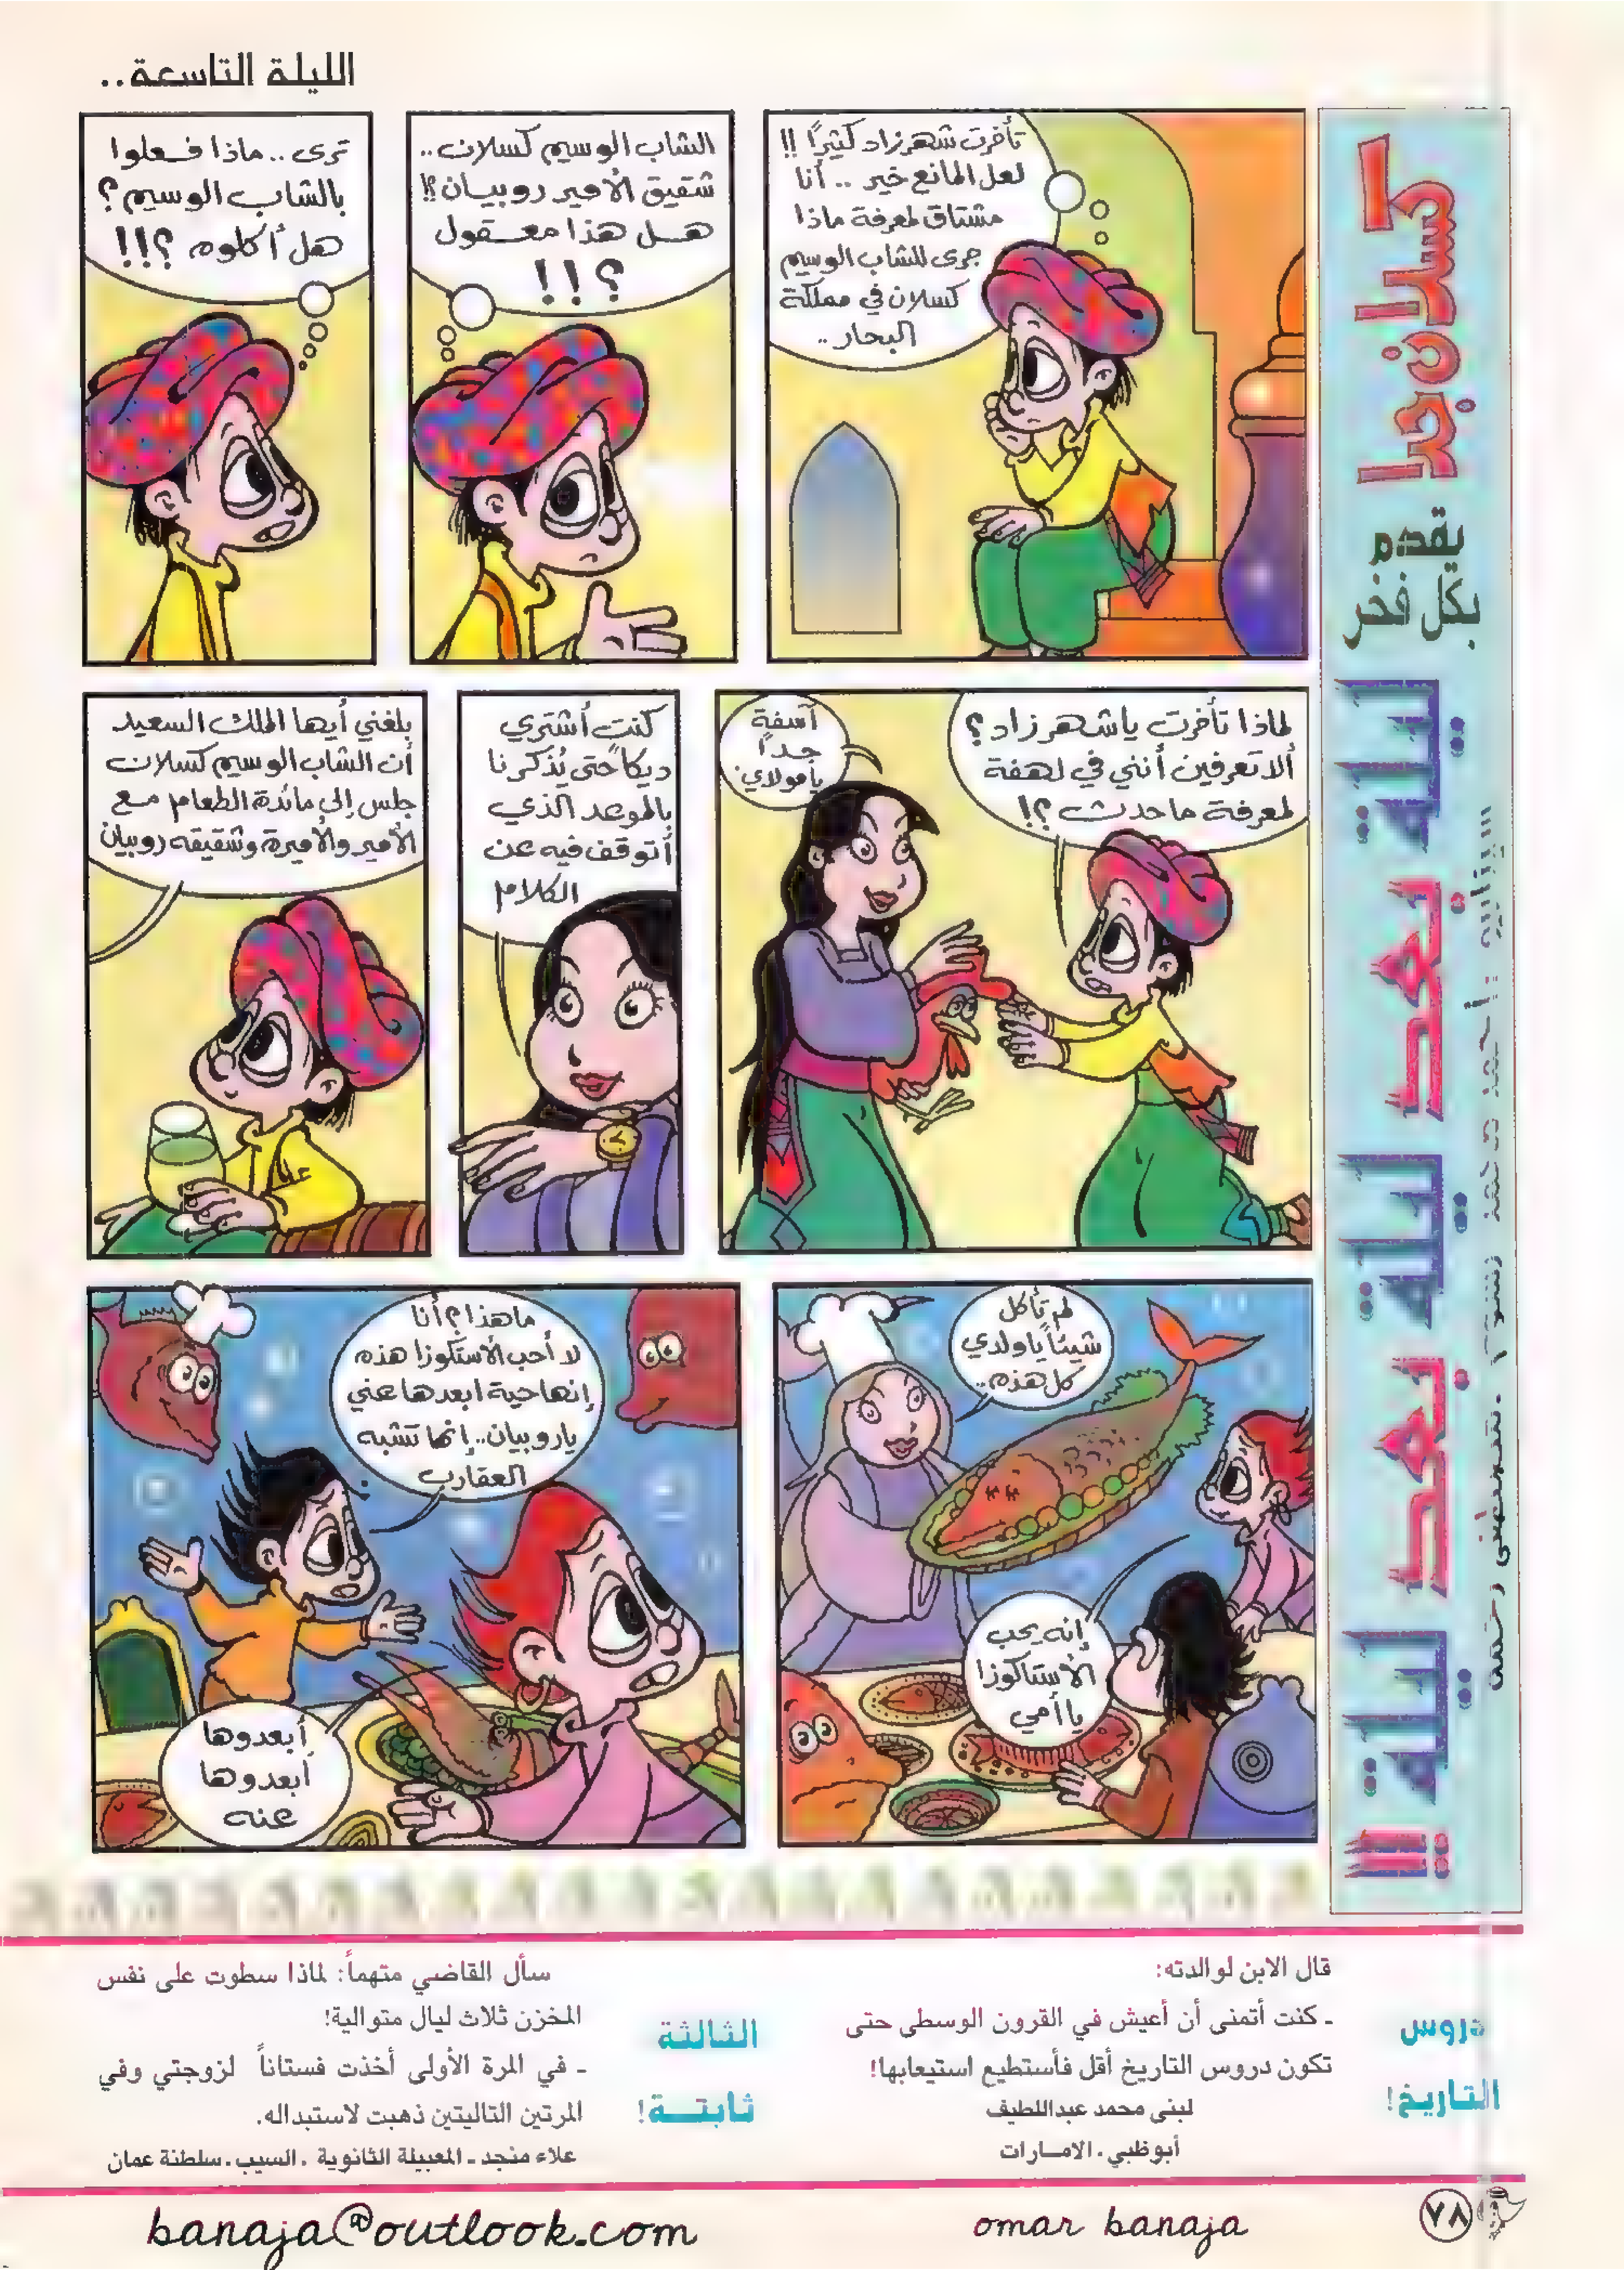 الليلة التاسعة..
كسلان جدا
يقدم
بكل فخر
ليلة بعد ليلة بعد ليلة !!!
تأخرت شهرزاد كثيرًا !!
لعل المانع خير .. أنا
مشتاق لمعرفة ماذا
جرى للشاب الوسيم
كسلان في مملكة
البحار..
الشاب الوسيم كسلان..
شقيق الأمير روبيان؟!
هل هذا معقول
؟!!
ترى.. ماذا فعلوا
بالشاب الوسيم؟
هل أكلوه ؟!!
لماذا تأخرت ياشهرزاد؟
ألا تعرفين أنني في لهفة
لمعرفة ما حدث ؟!
آسفة
جداً
يامولاي.
كنت أشتري
ديكاً حتى يُذكرنا
بالموعد الذي
أتوقف فيه عن
الكلام
بلغني أيها الملك السعيد
أن الشاب الوسيم كسلان
جلس إلى مائدة الطعام مع
الأمير والأميرة وشقيقه روبيان
لم تأكل
شيئاً ياولدي
كل هذه..
إنه يحب
الأستاكوزا
يا أمي
ما هذا؟ أنا
لا أحب الأستكوزا هذه
إنها حية ابعدها عني
ياروبيان.. إنها تشبه
العقارب
أبعدوها
أبعدوها
عنه
دروس
التاريخ!
قال الابن لوالدته:
ـ كنت أتمنى أن أعيش في القرون الوسطى حتى
تكون دروس التاريخ أقل فأستطيع استيعابها!
لبنى محمد عبداللطيف
أبوظبي . الامارات
الثالثة
ثابتة!
سأل القاضي متهماً: لماذا سطوت على نفس
المخزن ثلاث ليال متوالية!
ـ في المرة الأولى أخذت فستاناً لزوجتي وفي
المرتين التاليتين ذهبت لاستبداله.
علاء منجد ـ المعبيلة الثانوية . السيب . سلطنة عمان
٧٨
omar banaja
banaja@outlook.com